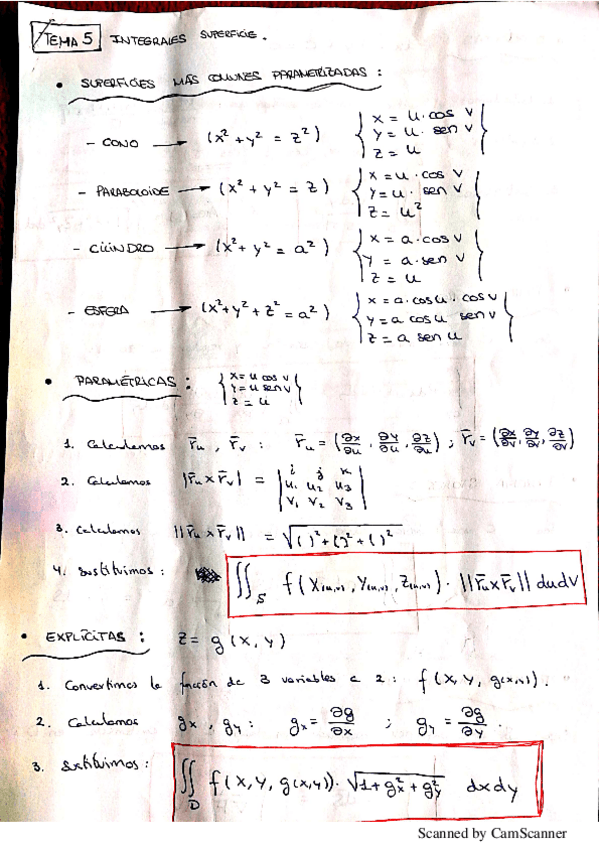 TEMA 5 INTEGRALES SUPERFICIE.
• SUPERFICIES MÁS COMUNES PARAMETRIZADAS:
- CONO → (x² + y² = z²) { x = u · cos v
y = u · sen v
z = u }
- PARABOLOIDE → (x² + y² = z) { x = u · cos v
y = u · sen v
z = u² }
- CILINDRO → (x² + y² = a²) { x = a · cos v
y = a · sen v
z = u }
- ESFERA → (x² + y² + z² = a²) { x = a · cos u · cos v
y = a cos u sen v
z = a sen u }
• PARAMÉTRICAS: { x = u cos v
y = u sen v
z = u }
1. Calculamos r̄u , r̄v : r̄u = (∂x/∂u , ∂y/∂u , ∂z/∂u) ; r̄v = (∂x/∂v, ∂y/∂v, ∂z/∂v)
2. Calculamos |r̄u x r̄v| = | i j k
u₁ u₂ u₃
v₁ v₂ v₃ |
3. Calculamos ||r̄u x r̄v|| = √( )² + ( )² + ( )²
4. Sustituimos : ∬S f(x(u,v), y(u,v), z(u,v)) · ||r̄u x r̄v|| du dv
• EXPLÍCITAS : z = g(x, y)
1. Convertimos la función de 3 variables a 2 : f(x, y, g(x,y)).
2. Calculamos gx , gy : gx = ∂g/∂x ; gy = ∂g/∂y .
3. Sustituimos : ∬D f(x, y, g(x,y)) · √1 + gx² + gy² dx dy
Scanned by CamScanner